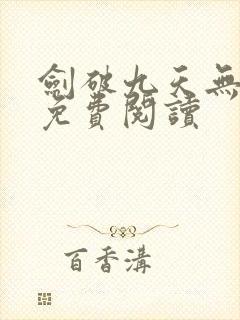 劍破九天無
免費閱讀
百香溝